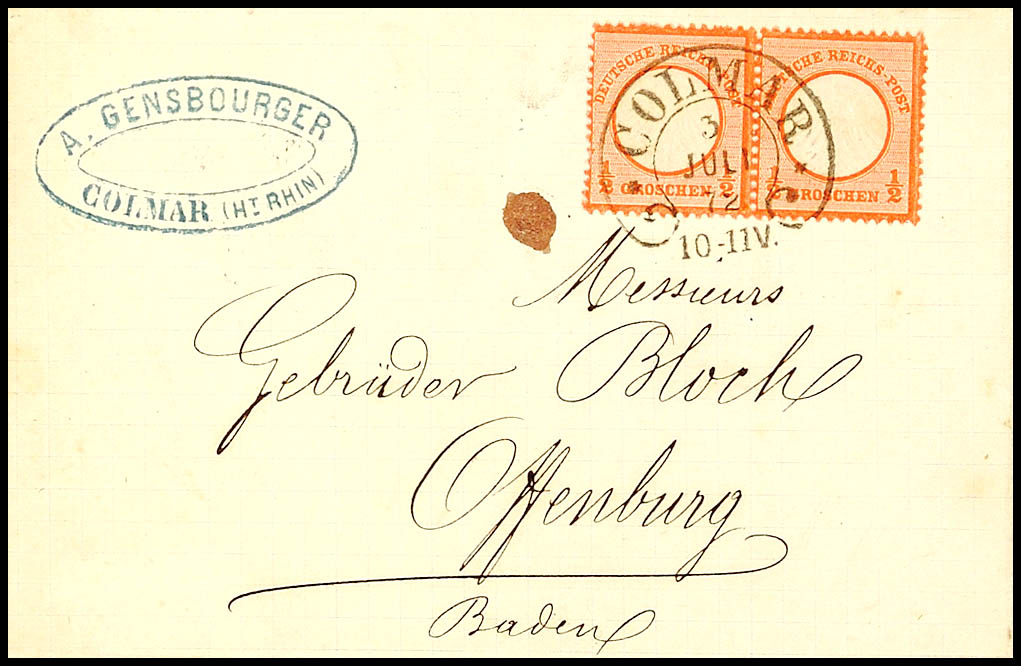 A. GENSBOURGER
COLMAR (HT RHIN)
DEUTSCHE REICHS-POST
1/2 GROSCHEN 1/2
REICHS-POST
1/2 GROSCHEN 1/2
COLMAR
3
JULI
72
10-11V.
Messieurs
Gebrüder Bloch
Offenburg
Baden